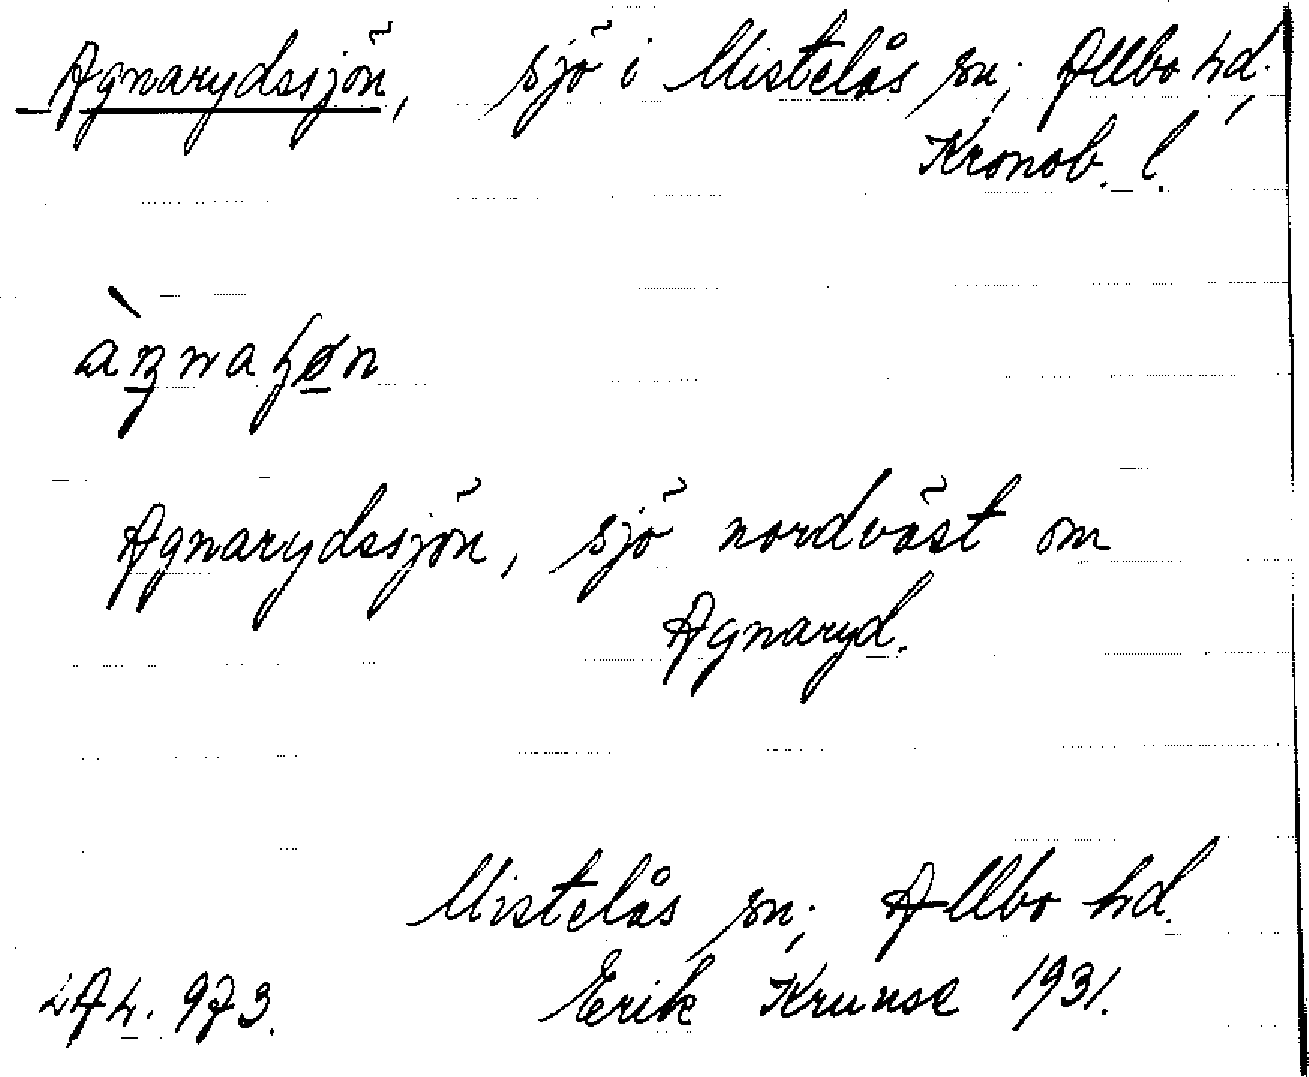 Agnarydssjön, sjö i Mistelås sn; Allbo hd.,
Kronob. l.
Agnarydssjön, sjö nordväst om
Agnaryd.
Mistelås sn; Allbo hd.
Erik Kruuse 1931.
973.